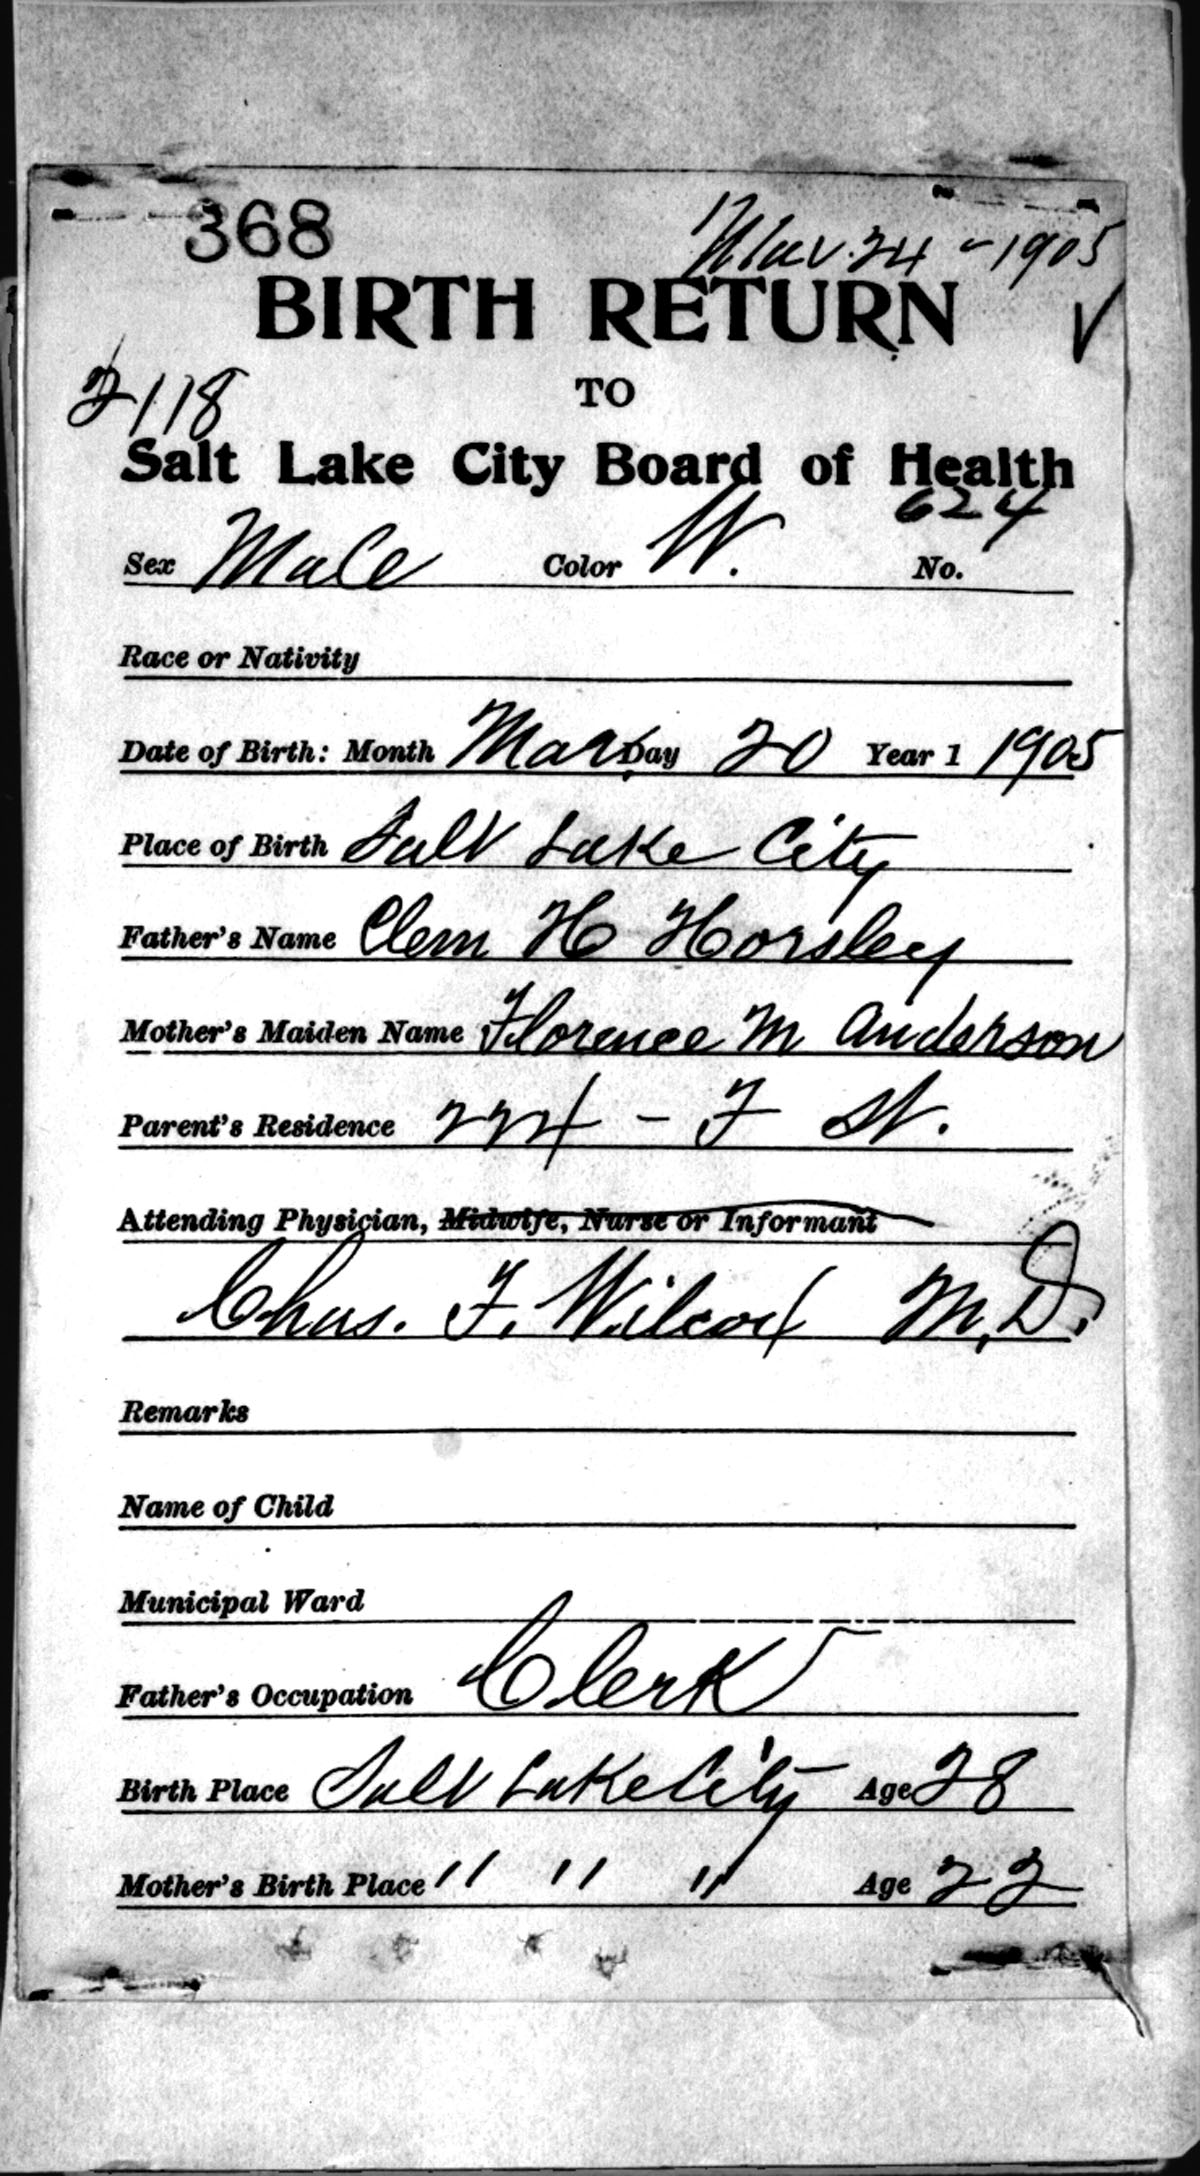 368
Mar. 24 - 1905
BIRTH RETURN
2118
TO
Salt Lake City Board of Health
624
Sex Male Color W. No.
Race or Nativity
Date of Birth: Month Mar. Day 20 Year 1 1905
Place of Birth Salt Lake City
Father's Name Clem H Horsley
Mother's Maiden Name Florence M Anderson
Parent's Residence 224 - F St.
Attending Physician, Midwife, Nurse or Informant
Chas. F. Wilcox M.D.
Remarks
Name of Child
Municipal Ward
Father's Occupation Clerk
Birth Place Salt Lake City Age 28
Mother's Birth Place " " " Age 22